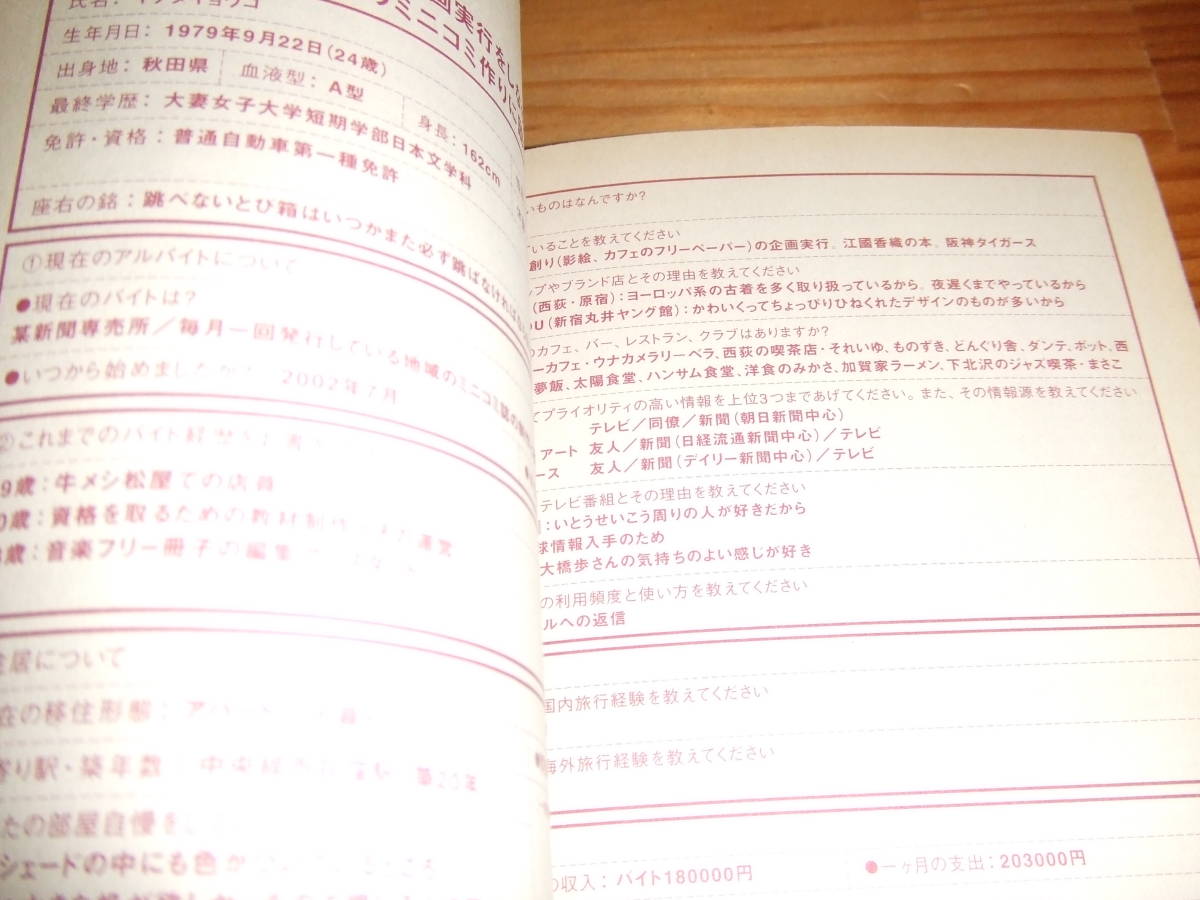 氏名：
画実行をし
ミニコミ作りに
生年月日：1979年9月22日（24歳）
出身地：秋田県 血液型：A型
最終学歴：大妻女子大学短期学部日本文学科
身長：162cm
免許・資格：普通自動車第一種免許
座右の銘：跳べないとび箱はいつかまた必ず跳ばなければ
①現在のアルバイトについて
●現在のバイトは？
某新聞専売所／毎月一回発行している地域のミニコミ誌の
●いつから始めましたか？ 2002年7月
②これまでのバイト経歴
9歳：牛メシ松屋での店員
0歳：資格を取るための教材制作
歳：音楽フリー冊子の編集
住居について
在の移住形態：アパート
寄り駅・築年数：中央線 築20年
たの部屋自慢を
シェードの中にも色が
いものはなんですか？
ていることを教えてください
創り（影絵、カフェのフリーペーパー）の企画実行。江國香織の本。阪神タイガース
ップやブランド店とその理由を教えてください
（西荻・原宿）：ヨーロッパ系の古着を多く取り扱っているから。夜遅くまでやっているから
OU（新宿丸井ヤング館）：かわいくってちょっぴりひねくれたデザインのものが多いから
のカフェ、バー、レストラン、クラブはありますか？
ーカフェ・ウナカメラリーベラ、西荻の喫茶店・それいゆ、ものずき、どんぐり舎、ダンテ、ポット、西
夢飯、太陽食堂、ハンサム食堂、洋食のみかさ、加賀家ラーメン、下北沢のジャズ喫茶・まさこ
てプライオリティの高い情報を上位3つまであげてください。また、その情報源を教えてください
テレビ／同僚／新聞（朝日新聞中心）
アート 友人／新聞（日経流通新聞中心）／テレビ
ース 友人／新聞（デイリー新聞中心）／テレビ
テレビ番組とその理由を教えてください
：いとうせいこう周りの人が好きだから
球情報入手のため
大橋歩さんの気持ちのよい感じが好き
の利用頻度と使い方を教えてください
ルへの返信
国内旅行経験を教えてください
海外旅行経験を教えてください
の収入：バイト180000円 ●一ヶ月の支出：203000円